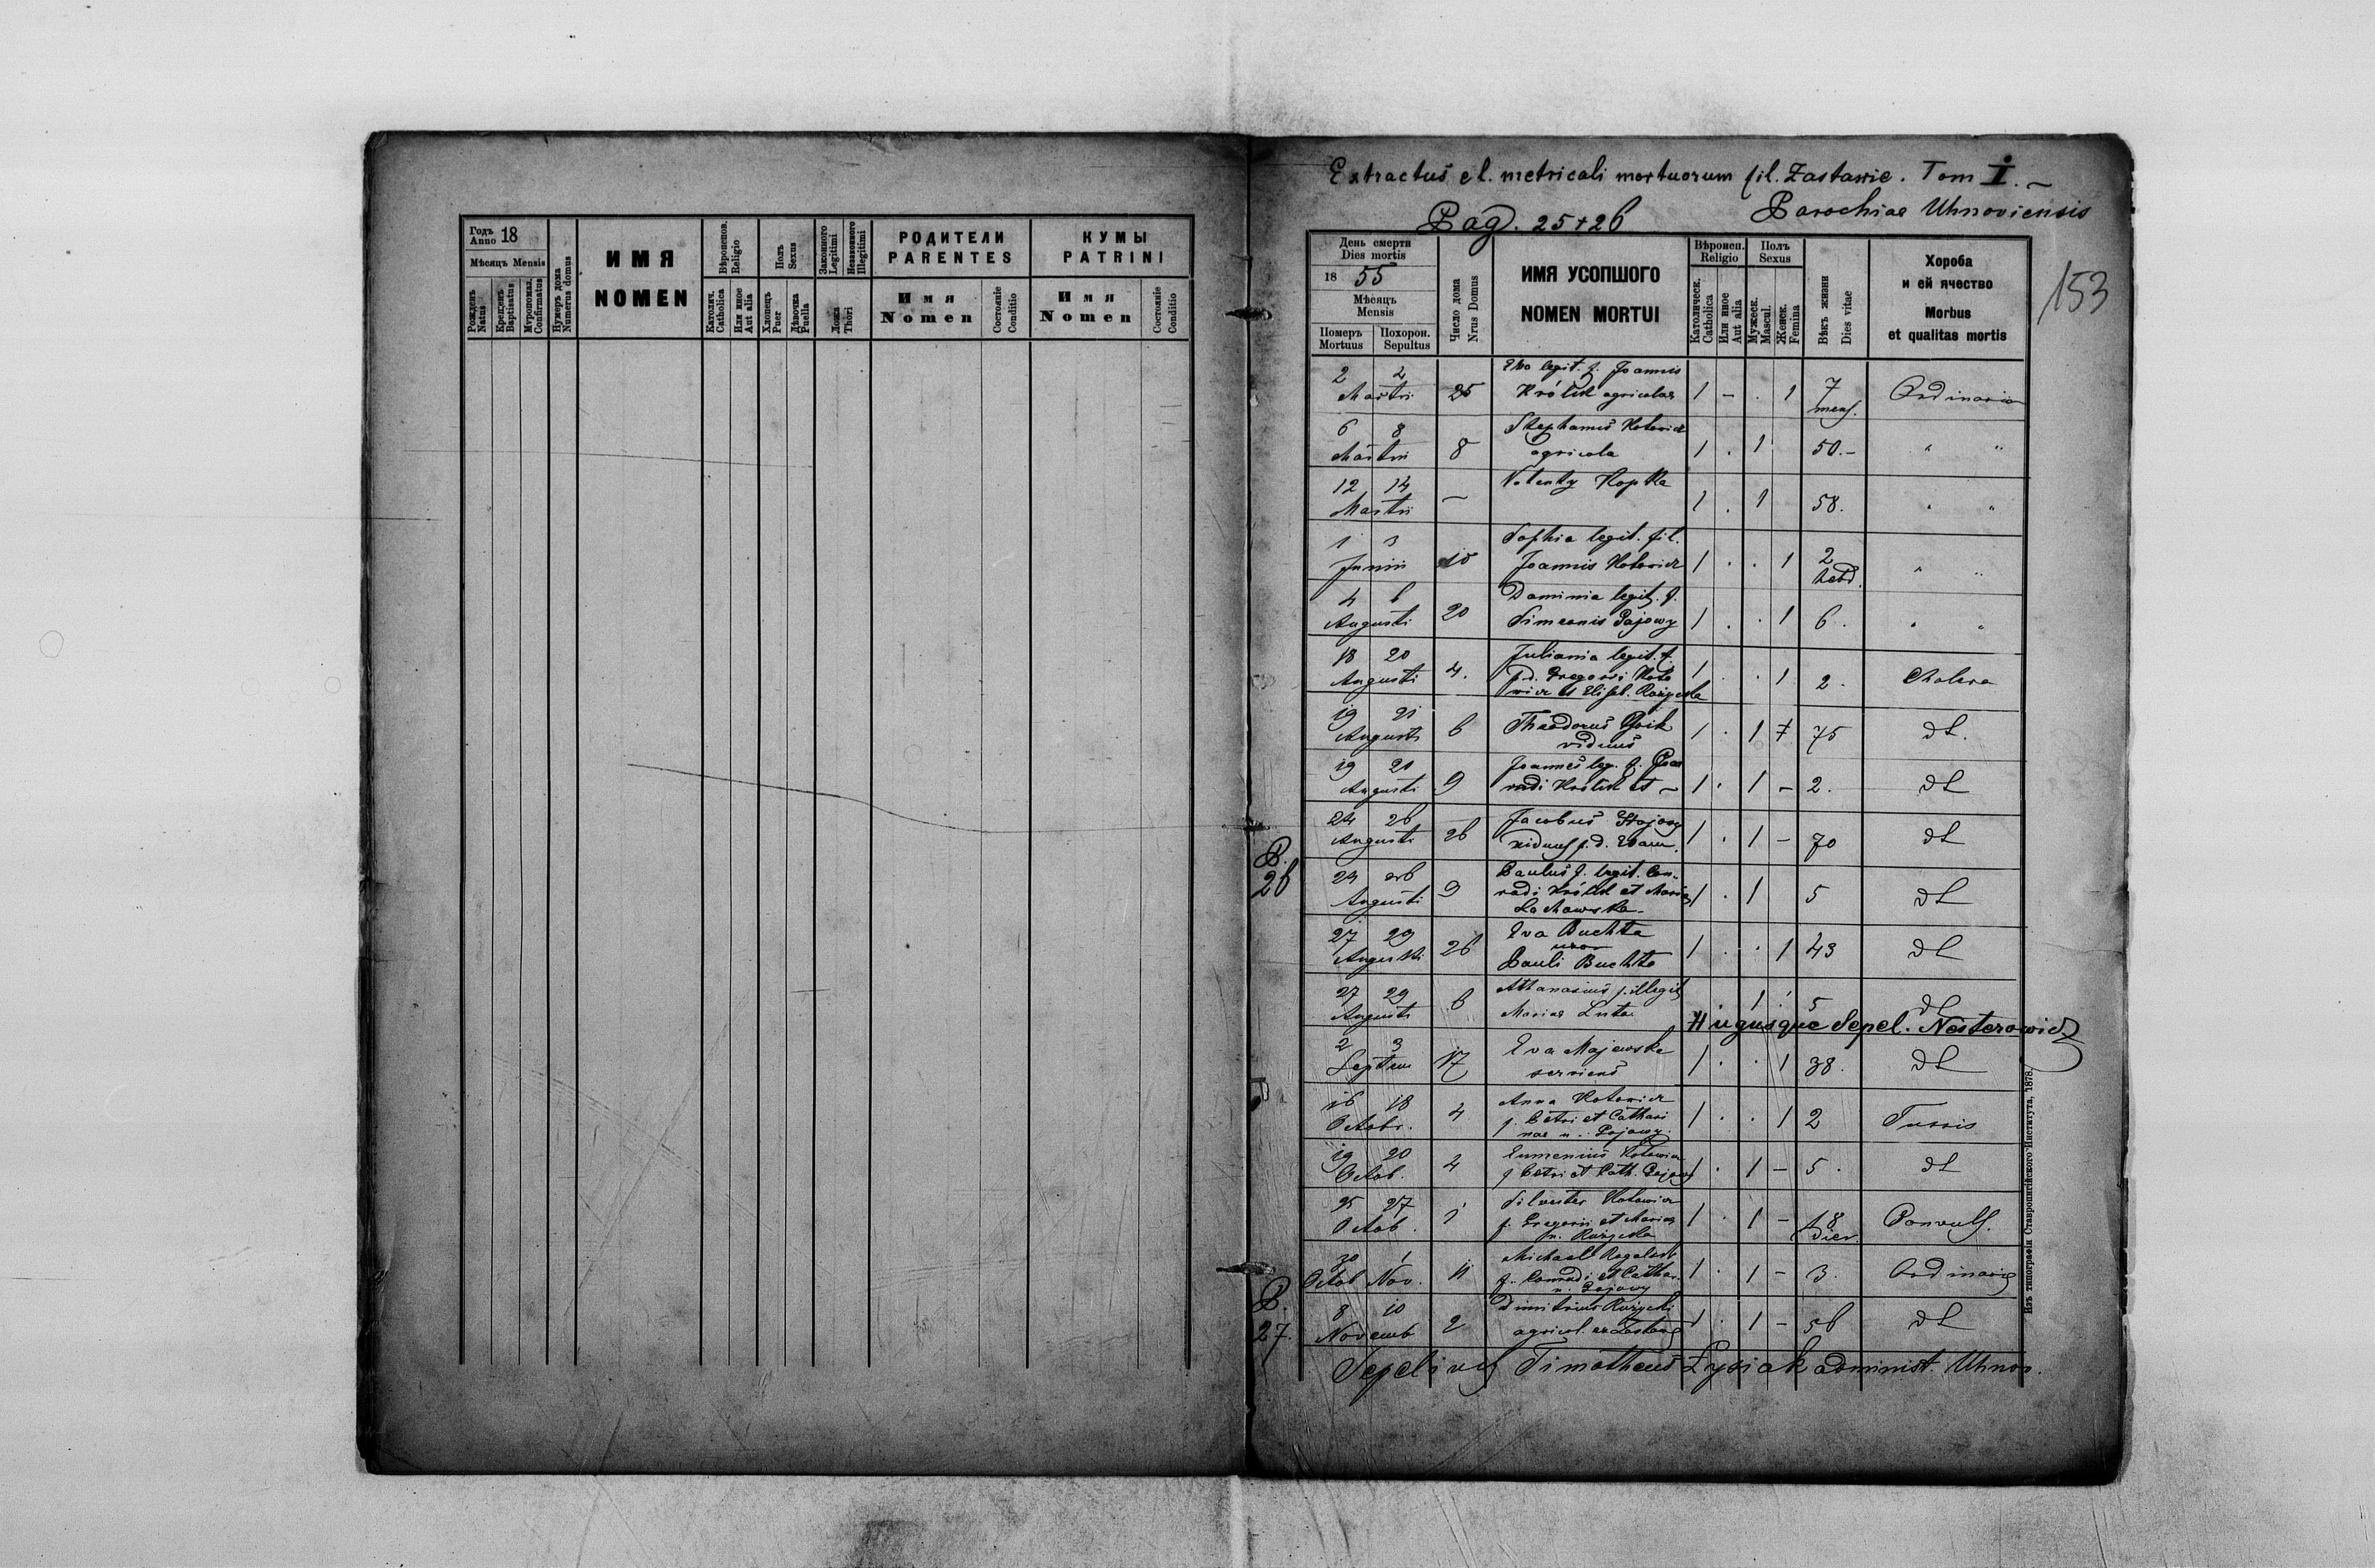 Extractus e l. metricali mortuorum fil. Zastawie. Tom I. –
Parochiae Uhnoviensis
Pag. 25 + 26
153
Годъ Anno 18
Мѣсяцъ Mensis
Рожденъ Natus
Крещенъ Baptisatus
Муропомаз. Confirmatus
Нумеръ дома Numerus domus
ИМЯ
NOMEN
Вѣроиспов. Religio
Католич. Catholica
Или иное Aut alia
Полъ Sexus
Хлопецъ Puer
Дѣвочка Puella
Законного Legitimi
Незаконного Illegitimi
Ложа Thori
РОДИТЕЛИ
PARENTES
Имя
Nomen
Состояніе Conditio
КУМЫ
PATRINI
Имя
Nomen
Состояніе Conditio
День смерти
Dies mortis
18 55
Мѣсяцъ
Mensis
Померъ Mortuus
Похорон. Sepultus
Число дома Nrus Domus
ИМЯ УСОПШОГО
NOMEN MORTUI
Вѣроисп. Religio
Католическ. Catholica
Или иное Aut alia
Полъ Sexus
Мужеск. Mascul.
Женск. Femina
Вѣкъ жизни Dies vitae
Хороба
и ей ячество
Morbus
et qualitas mortis
2 Martii 25 Eva legit. f. Joannis
Królik agricolae 1 – . 1 7 mens. Ordinaria
6 8 Martii 8 Stephanus Kotowicz
agricola 1 . 1 50. – " "
12 14 Martii – Kopka 1 . 1 58. " "
1 3 Junii 10 Sophia legit. fil.
Joannis Kotowicz 1 . . 1 2 hebd. " "
4 6 Augusti 20 legit. f.
Simeonis Gajowy 1 . . 1 6. " "
18 20 Augusti 4. Juliania legit. f.
p.d. Gregorii Koto
wicz et Elisab. Rożycka 1 . . 1 2. Cholera
19 21 Augusti 6 Theodorus
viduus 1 . 1 75 dt.
19 21 Augusti 9 Joannes leg. f. Con
radi Królik et – 1 . 1 – 2. dt
24 26 Augusti 26 Jacobus
viduus p. d. 1 . 1 – 70 dt
P. 26
24 26 Augusti 9 Paulus f. legit. Con-
radi Królik et Mariae
Lachowska 1 . 1 5 dt
27 29 Augusti 26 Eva Buchta
uxor
Pauli Buchta 1 . . 1 43 dt
27 29 Augusti 6 Athanasius f. illegit
Mariae Luta 1 5 dt
Hugusque Sepel. Nesterowicz
2 3 Septem 17 Eva Majewska
serviens 1 . . 1 38. dt
16 18 Octobr. 4 Anna Kotowicz
f. Petri et Cathari
nae n. Gajowy. 1 . . 1 2 Tussis
19 20 Octob. 4 Eumenius Kotowicz
f Petri et Cath. Gajowy 1 . 1 – 5. dt
25 27 Octob. 1 Silvester Kotowicz
f. Gregorii et Mariae
n. Rożycka 1 . 1 – 18 dier. Convuls.
30 Octob 1 Nov. 11 Michael
f. Conradi et Cathar.
n. Gajowy 1 . 1 – 3. Ordinaria
P. 27.
8 10 Novemb 2 Dimitrius Rożycki
agricol. ex Zastawie 1 . 1 – 56 dt
Sepelivit Timotheus Łysiak administ. Uhnov.
Изъ типографіи Ставропигійского Института, 1878.